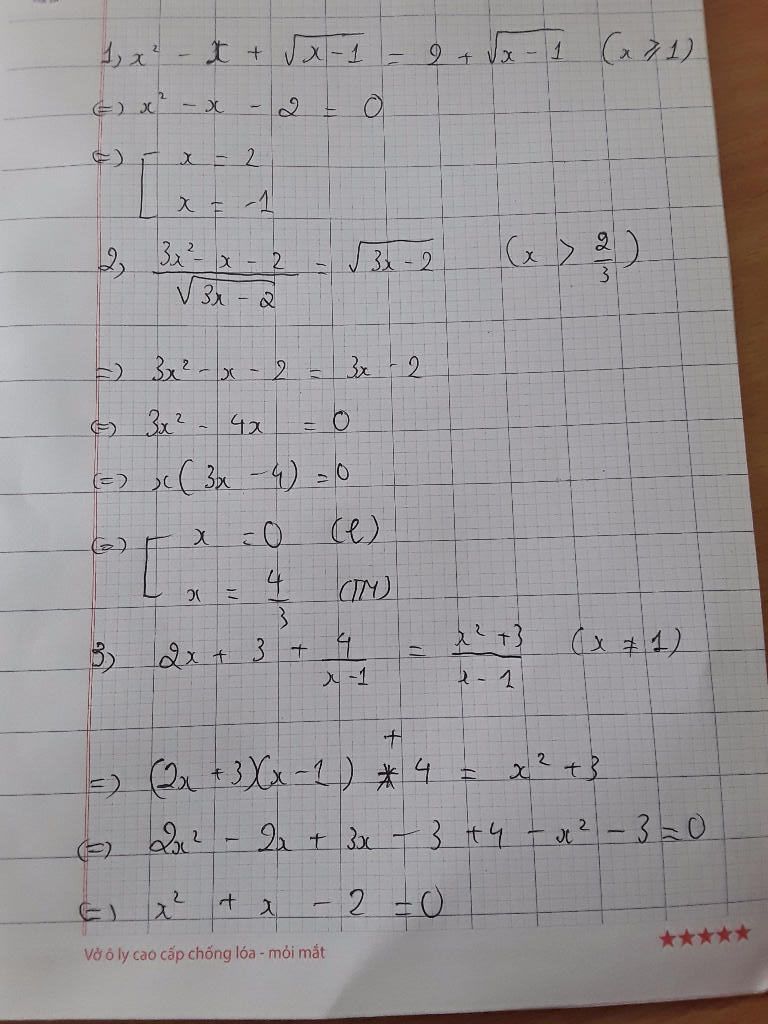 1, x² - x + √(x-1) = 2 + √(x-1) (x ≥ 1)
⇔ x² - x - 2 = 0
⇔ [ x = 2
x = -1
2, (3x² - x - 2)/√(3x - 2) = √(3x - 2) (x > 2/3)
⇒ 3x² - x - 2 = 3x - 2
⇔ 3x² - 4x = 0
⇔ x(3x - 4) = 0
⇔ [ x = 0 (l)
x = 4/3 (TM)
3) 2x + 3 + 4/(x-1) = (x² + 3)/(x - 1) (x ≠ 1)
⇒ (2x + 3)(x - 1) + 4 = x² + 3
⇔ 2x² - 2x + 3x - 3 + 4 - x² - 3 = 0
⇔ x² + x - 2 = 0
Vở ô ly cao cấp chống lóa - mỏi mắt